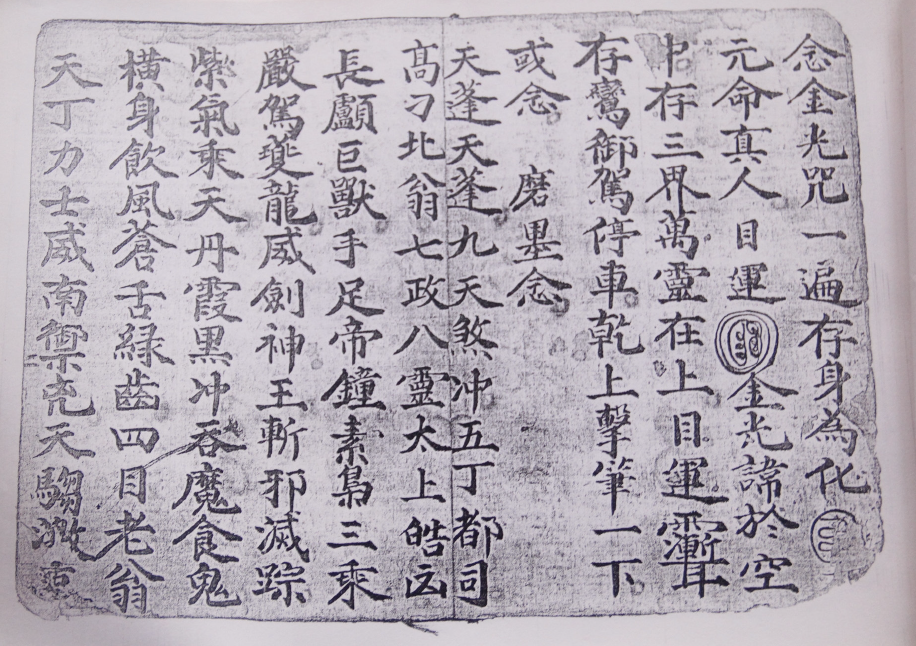 念金光咒一遍存身為化
元命真人目運金光諱於空
中存三界萬靈在上目運聻
存鸞御駕停車乾上擊筆一下
或念 磨墨念
天蓬天蓬九天煞冲五丁都司
高刁北翁七政八靈太上皓凶
長顱巨獸手足帝鐘素梟三乘
嚴駕夔龍威劍神王斬邪滅踪
紫氣乘天丹霞黑冲吞魔食鬼
橫身飲風蒼舌緑齒四目老翁
天丁力士威南禦兇天騶激